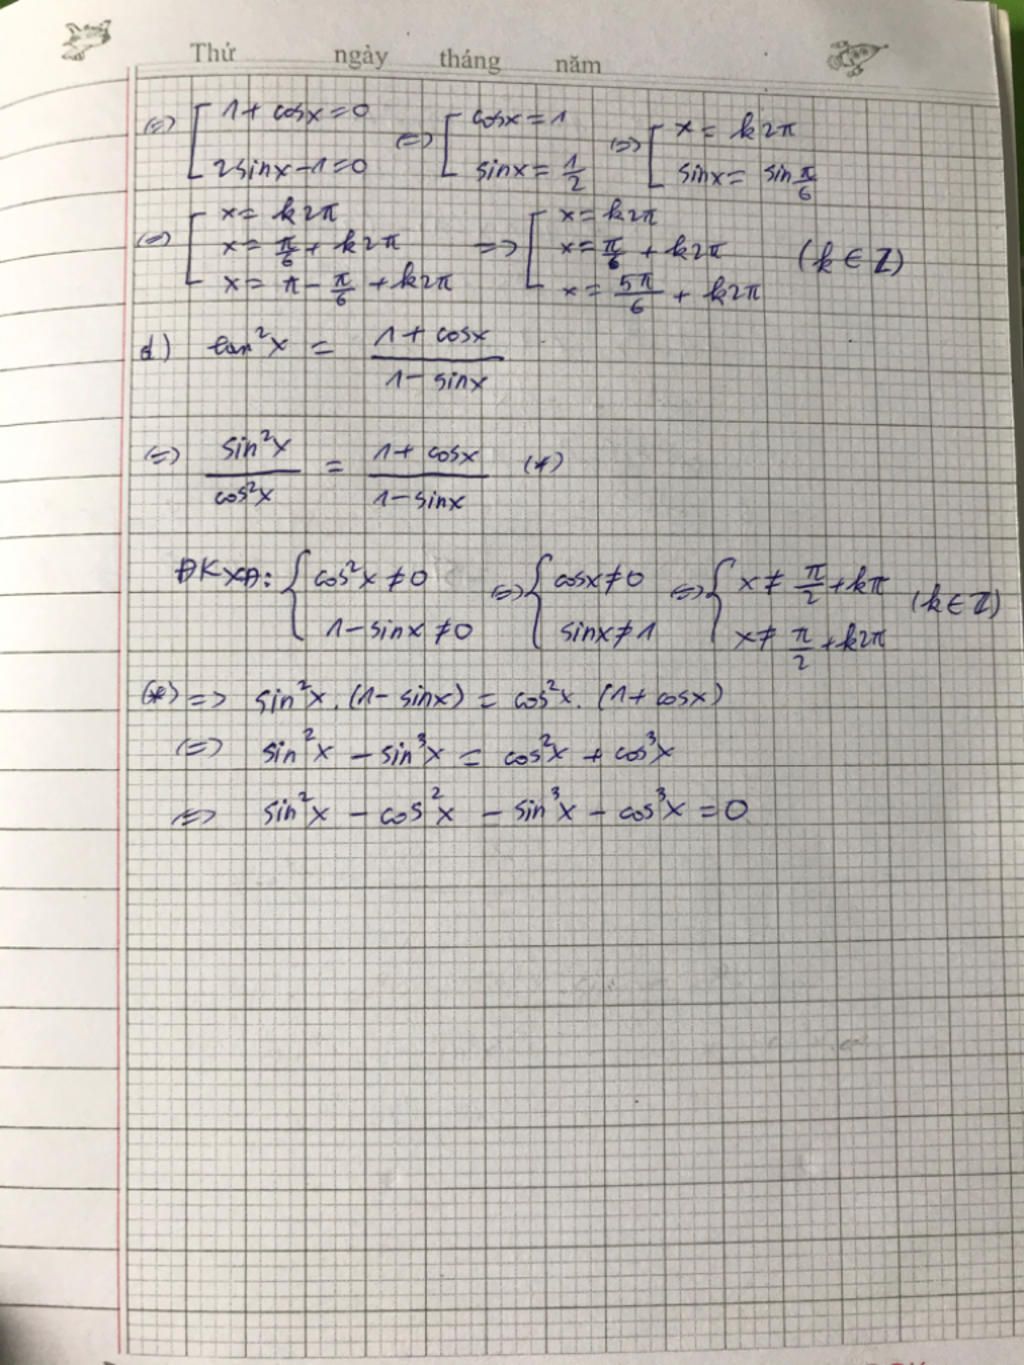 Thứ ngày tháng năm
<=> [ 1 + cosx = 0 <=> [ cosx = 1 <=> [ x = k2π
2sinx - 1 = 0 sinx = 1/2 sinx = sin π/6
<=> [ x = k2π => [ x = k2π
x = π/6 + k2π x = π/6 + k2π (k ∈ Z)
x = π - π/6 + k2π x = 5π/6 + k2π
d) tan²x = (1 + cosx)/(1 - sinx)
<=> sin²x/cos²x = (1 + cosx)/(1 - sinx) (*)
ĐKXĐ: { cos²x ≠ 0 <=> { cosx ≠ 0 <=> { x ≠ π/2 + kπ (k ∈ Z)
1 - sinx ≠ 0 sinx ≠ 1 x ≠ π/2 + k2π
(*) => sin²x . (1 - sinx) = cos²x . (1 + cosx)
<=> sin²x - sin³x = cos²x + cos³x
<=> sin²x - cos²x - sin³x - cos³x = 0